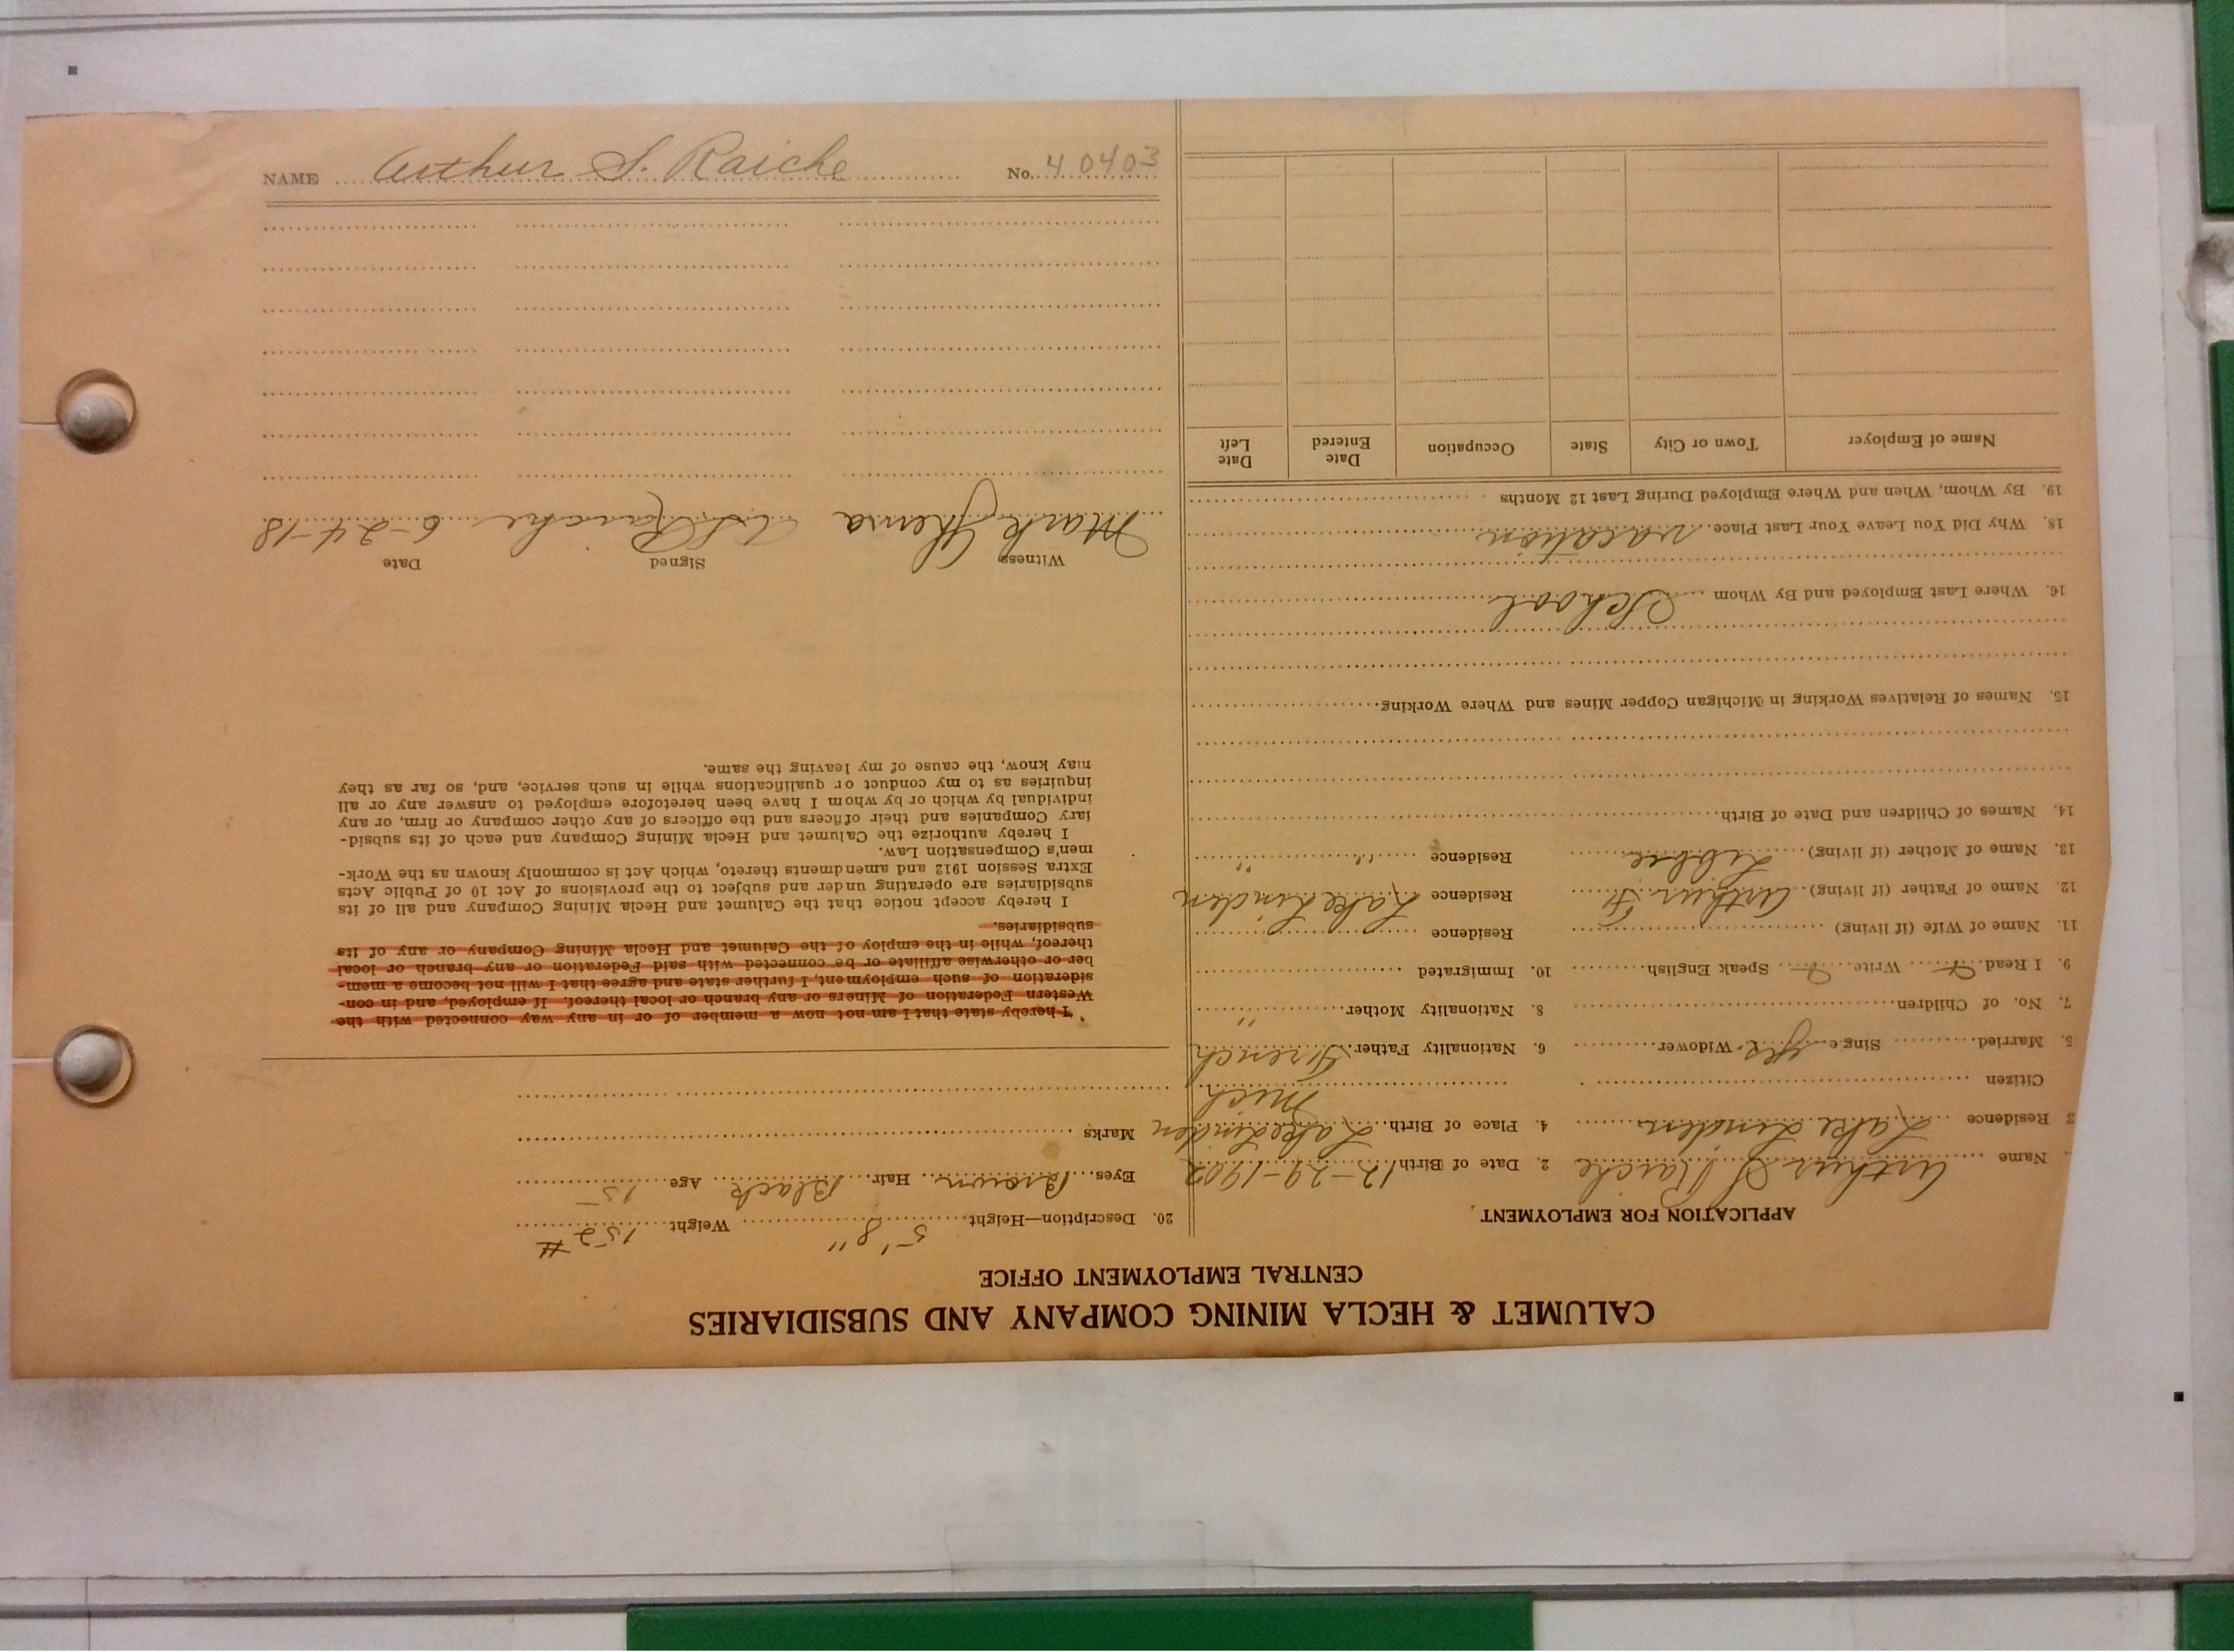 CALUMET & HECLA MINING COMPANY AND SUBSIDIARIES
CENTRAL EMPLOYMENT OFFICE
APPLICATION FOR EMPLOYMENT
Name Arthur S Raiche 2. Date of Birth 12-29-1902
3 Residence Lake Linden 4. Place of Birth Lake Linden
Mich
Citizen
5. Married Single yes Widower 6. Nationality Father French
7. No. of Children 8. Nationality Mother "
9. I Read Write Speak English 10. Immigrated
11. Name of Wife (if living) Residence
12. Name of Father (if living) Arthur F. Residence Lake Linden
13. Name of Mother (if living) Libbie Residence "
14. Names of Children and Date of Birth
15. Names of Relatives Working in Michigan Copper Mines and Where Working
16. Where Last Employed and By Whom School
18. Why Did You Leave Your Last Place vacation
19. By Whom, When and Where Employed During Last 12 Months
Name of Employer Town or City State Occupation Date Entered Date Left
20. Description—Height 5'8" Weight 152 #
Eyes Brown Hair Black Age 15
Marks
"I hereby state that I am not now a member of or in any way connected with the
Western Federation of Miners or any branch or local thereof. If employed, and in con-
sideration of such employment, I further state and agree that I will not become a mem-
ber or otherwise affiliate or be connected with said Federation or any branch or local
thereof, while in the employ of the Calumet and Hecla Mining Company or any of its
subsidiaries.
I hereby accept notice that the Calumet and Hecla Mining Company and all of its
subsidiaries are operating under and subject to the provisions of Act 10 of Public Acts
Extra Session 1912 and amendments thereto, which Act is commonly known as the Work-
men's Compensation Law.
I hereby authorize the Calumet and Hecla Mining Company and each of its subsid-
iary Companies and their officers and the officers of any other company or firm, or any
individual by which or by whom I have been heretofore employed to answer any or all
inquiries as to my conduct or qualifications while in such service, and, so far as they
may know, the cause of my leaving the same.
Witness Signed Date
Mark A.S. Raiche 6-24-18
NAME Arthur S. Raiche No. 40403